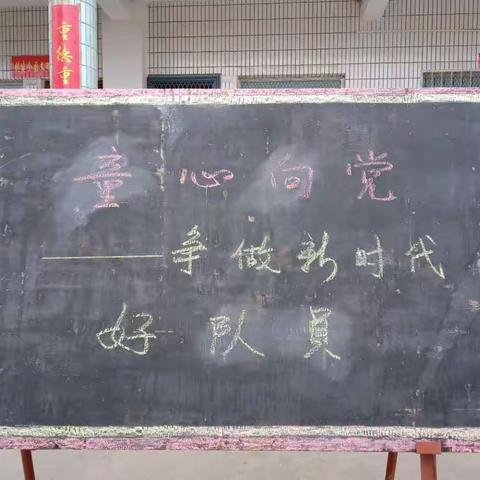 重德重
童心向党
——争做新时代
好队員